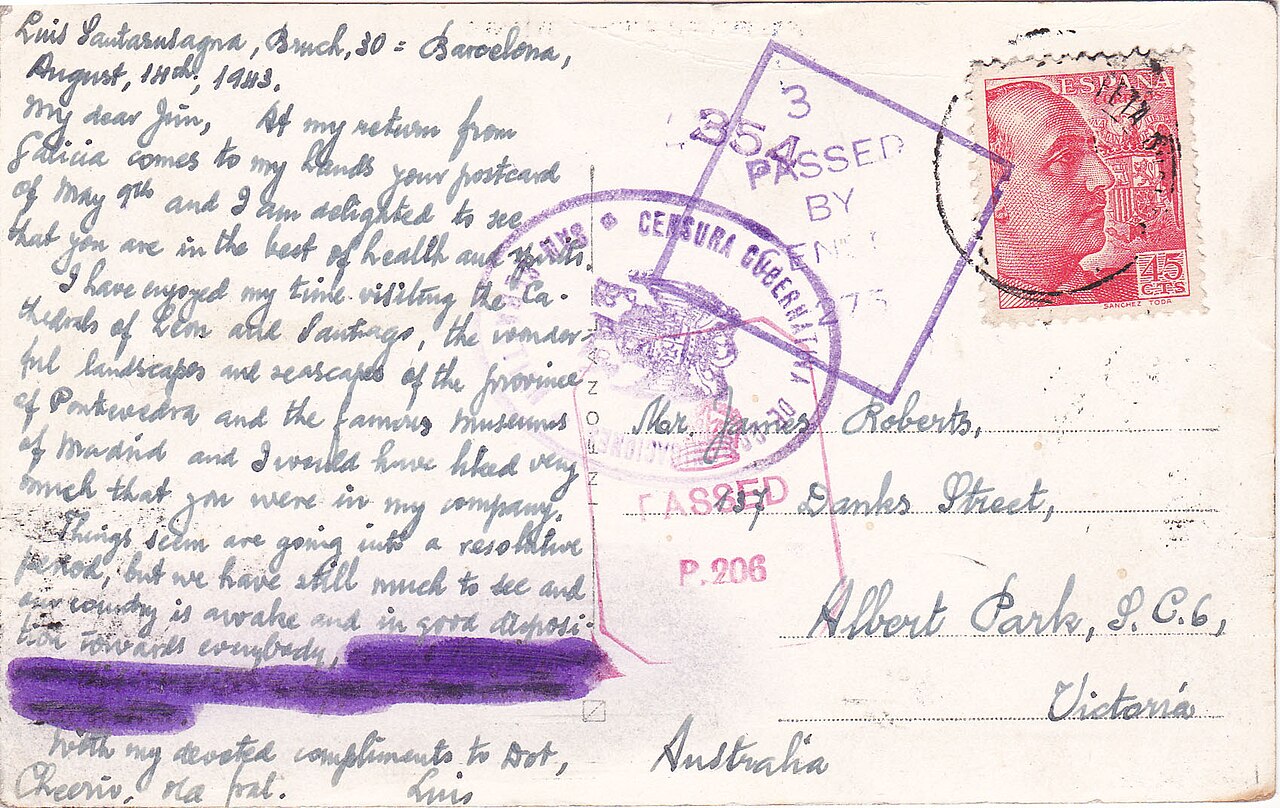 Luis Santasusagna, Bruch, 30 = Barcelona,
August, 14th, 1943.
My dear Jim, At my return from
Galicia comes to my hands your postcard
of May 9th and I am delighted to see
that you are in the best of health and spirits.
I have enjoyed my time visiting the Ca-
thedrals of Leon and Santiago, the wonder-
ful landscapes and seascapes of the province
of Pontevedra and the famous Museums
of Madrid and I would have liked very
much that you were in my company.
Things seem are going into a resolutive
period, but we have still much to see and
our country is awake and in good disposi-
tion towards everybody,
With my devoted compliments to Dot,
Cheerio, old pal. Luis
3
354
PASSED
BY
CENSURA GUBERNATIVA
ESPAÑA
45
CTS
SANCHEZ TODA
PASSED
P.206
Mr. James Roberts,
137 Danks Street,
Albert Park, S.C.6,
Victoria
Australia